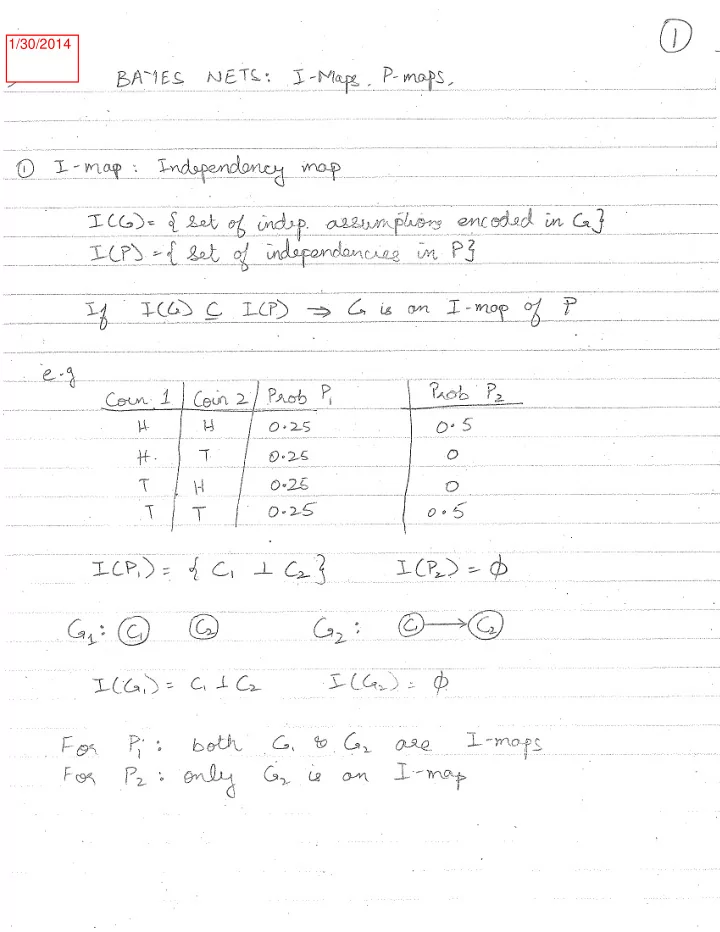 1/30/2014
①
BAYES NETS: I-Maps. P-maps.
① I-map : Independency map
I(G) = { set of indep. assumptions encoded in G }
I(P) = { set of independencies in P }
If I(G) ⊆ I(P) ⇒ G is an I-map of P
e.g
Coin 1 | Coin 2 | Prob P₁ | Prob P₂
H | H | 0.25 | 0.5
H. | T | 0.25 | 0
T | H | 0.25 | 0
T | T | 0.25 | 0.5
I(P₁) = { C₁ ⊥ C₂ } I(P₂) = ϕ
G₁: C₁ C₂ G₂ : C₁ → C₂
I(G₁) = C₁ ⊥ C₂ I(G₂) = ϕ
For P₁ : both G₁ & G₂ are I-maps
For P₂ : only G₂ is an I-map